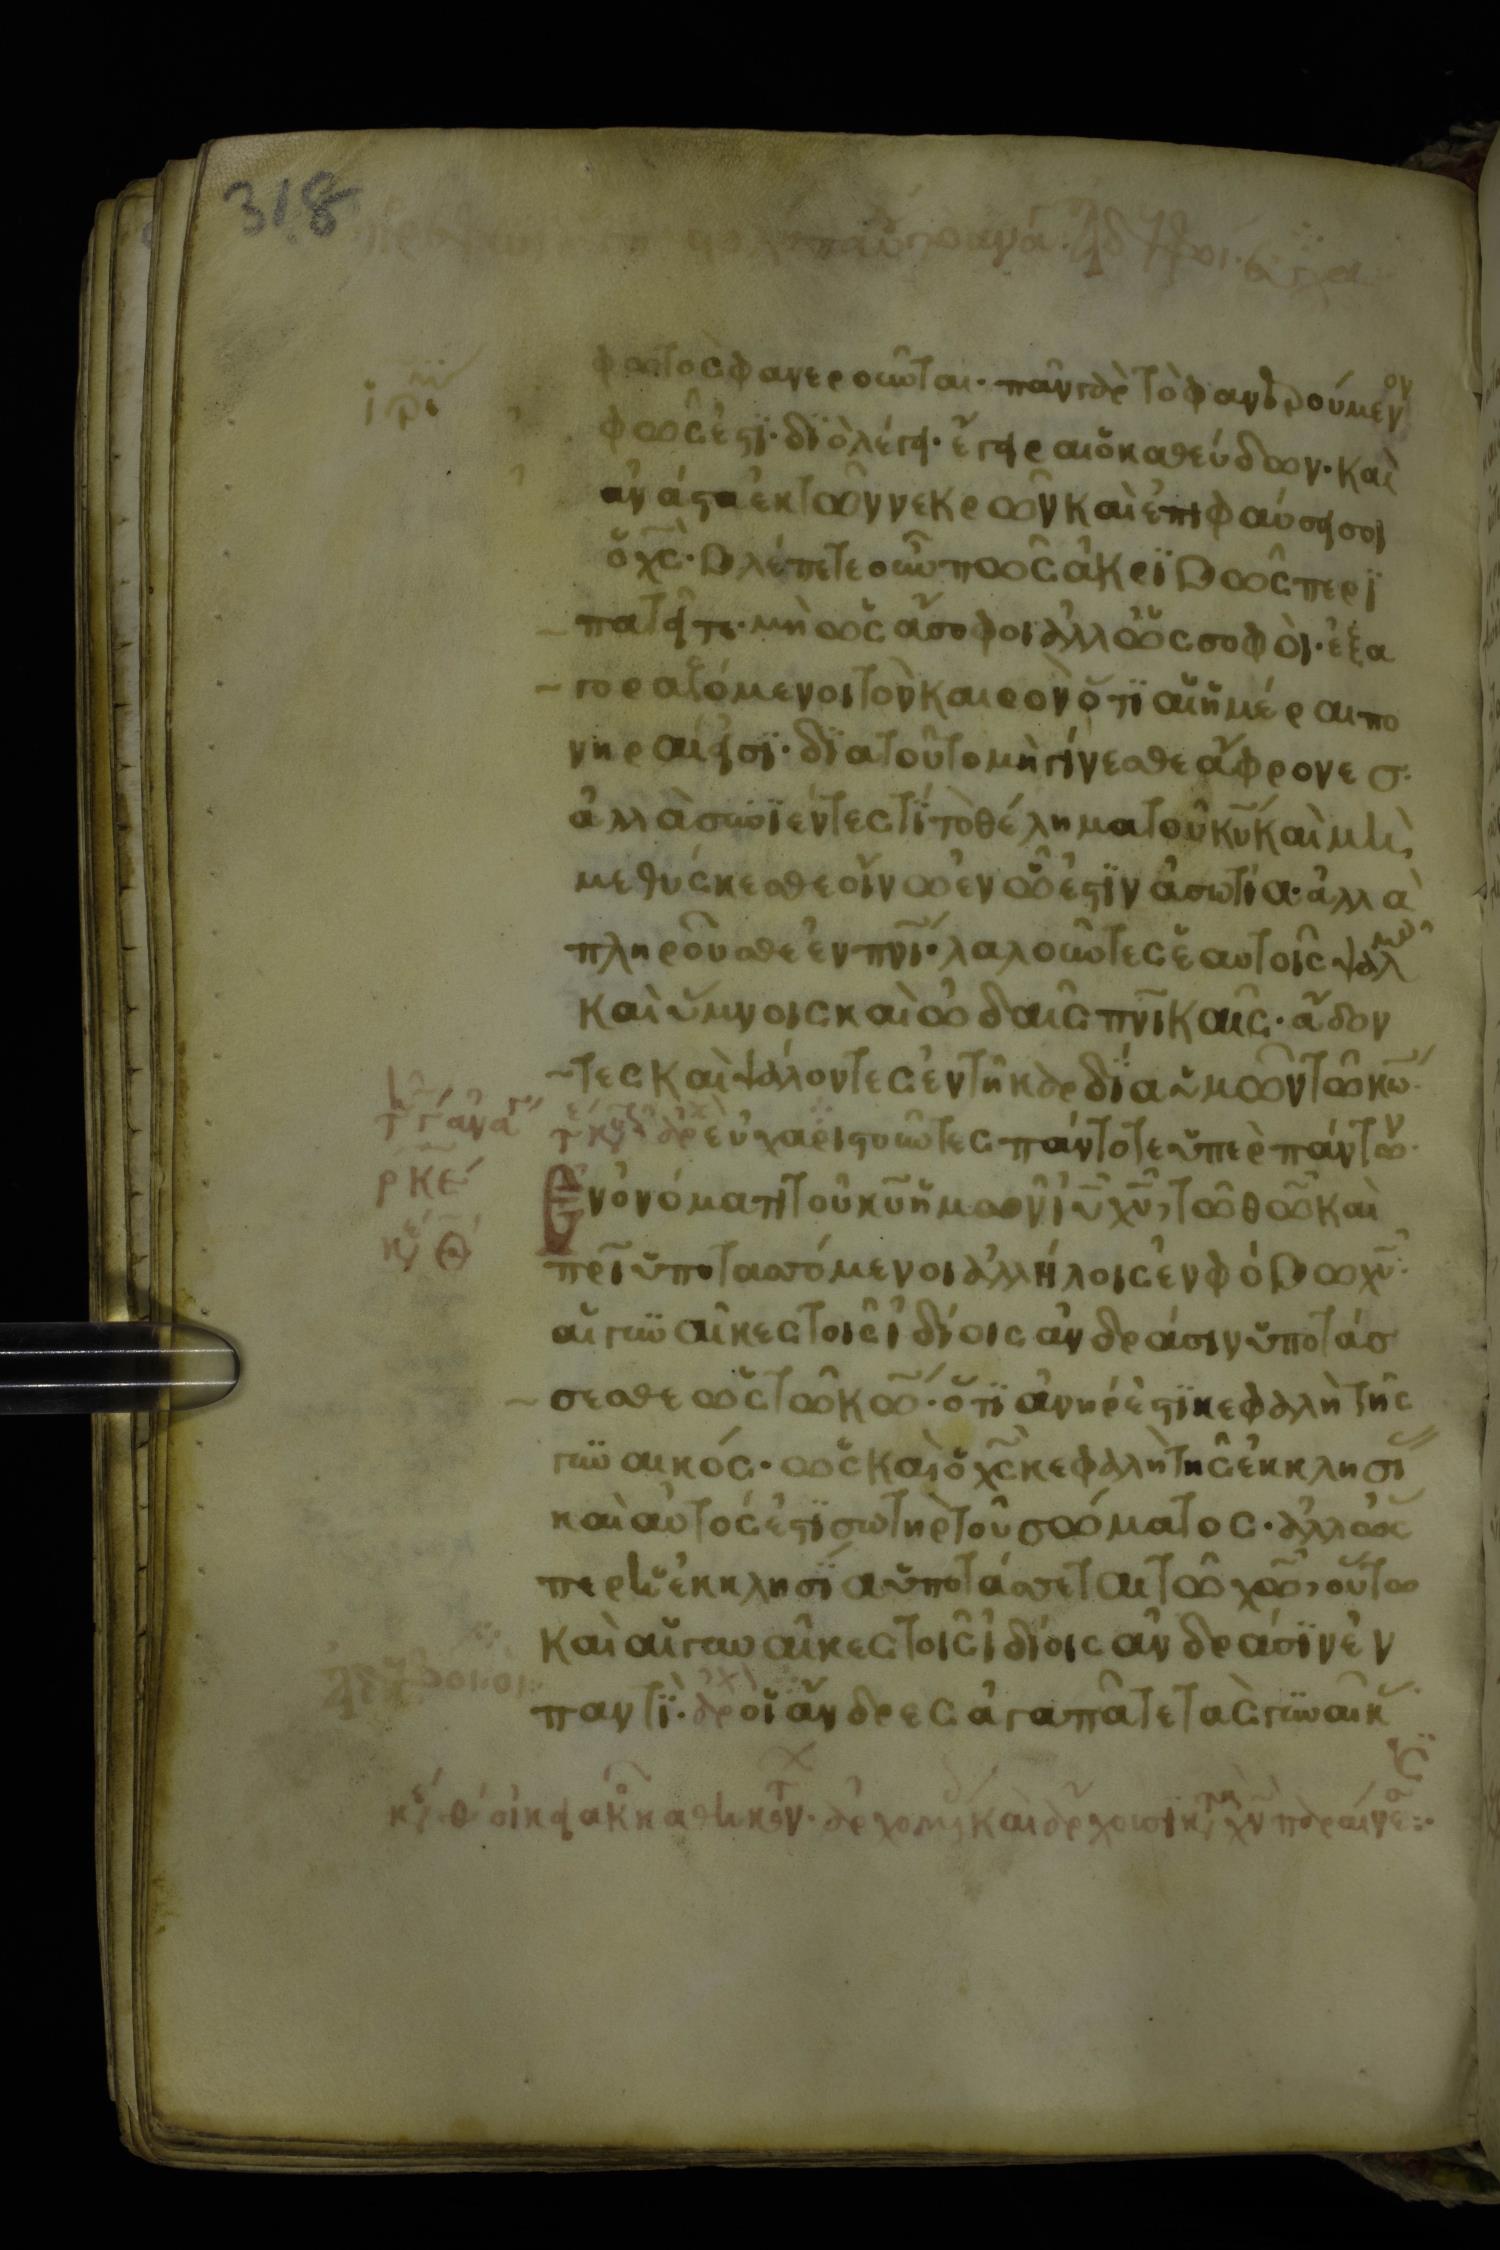 318
φωτὸς φανεροῦνται· πᾶν γὰρ τὸ φανερούμενον
φῶς ἐστϊ· διὸ λέγει· ἔγειραι ὁ καθεύδων· καὶ
ἀνάστα ἐκ τῶν νεκρῶν καὶ ἐπιφαύσει σοι
ὁ χς̅· Βλέπετε οὖν πῶς ἀκριβῶς περι
πατεῖτε· μὴ ὡς ἄσοφοι ἀλλ ὡς σοφοὶ· ἐξα
γοραζόμενοι τὸν καιρὸν ὅτϊ αἱ ἡμέραι πο
νηραί εἰσϊ· διατοῦτο μὴ γίνεσθε ἄφρονες·
ἀλλὰ συνϊέντες τί τὸ θέλημα τοῦ κυ̅ καὶ μὴ
μεθύσκεσθε οἴνω ἐν ὧ ἐστϊν ἀσωτία· ἀλλὰ
πληροῦσθε ἐν πνι̅· λαλοῦντες ἑαυτοῖς ψαλμοῖς
καὶ ὕμνοις καὶ ὠδαῖς πνι̅καῖς· ἄδον
τες καὶ ψάλοντες ἐν τῆ καρδία ὑμῶν τῶ κω̅·
εὐχαριστοῦντες πάντοτε ὑπὲρ πάντων·
Ἐν ὀνόματι τοῦ κυ̅ ἡμῶν ιυ̅ χυ̅, τῶ θω̅ καὶ
πρι̅ ὑποτασσόμενοι ἀλλήλοις ἐν φόβω χυ̅·
αἱ γυναῖκες τοῖς ἰδίοις ἀνδράσιν ὑποτάσ
σεσθε ὡς τῶ κω̅· ὅτϊ ἀνήρ ἐστϊ κεφαλὴ τῆς
γυναικός· ὡς καὶ ὁ χς̅ κεφαλὴ τῆς ἐκκλησί
καὶ αὐτός ἐστϊ σωτὴρ τοῦ σώματος· ἀλλ ὡς
περ ἡ ἐκκλησία ὑποτάσσεται τῶ χω̅, οὕτω
καὶ αἱ γυναῖκες τοῖς ἰδίοις ἀνδράσιν ἐν
παντὶ· ἀρχ οἱ ἄνδρες ἀγαπᾶτε τὰς γυναῖκ
ρκε